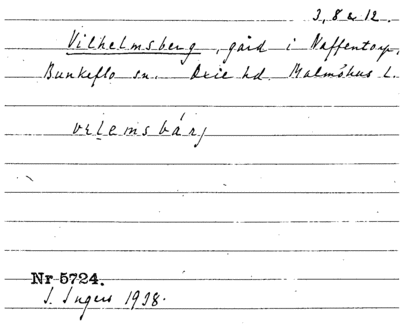 3, 8 & 12.
Vilhelmsberg, gård i Naffentorp,
Bunkeflo sn. Oxie hd. Malmöhus L.
vilemsbárj
Nr 5724.
I. Ingers 1938.